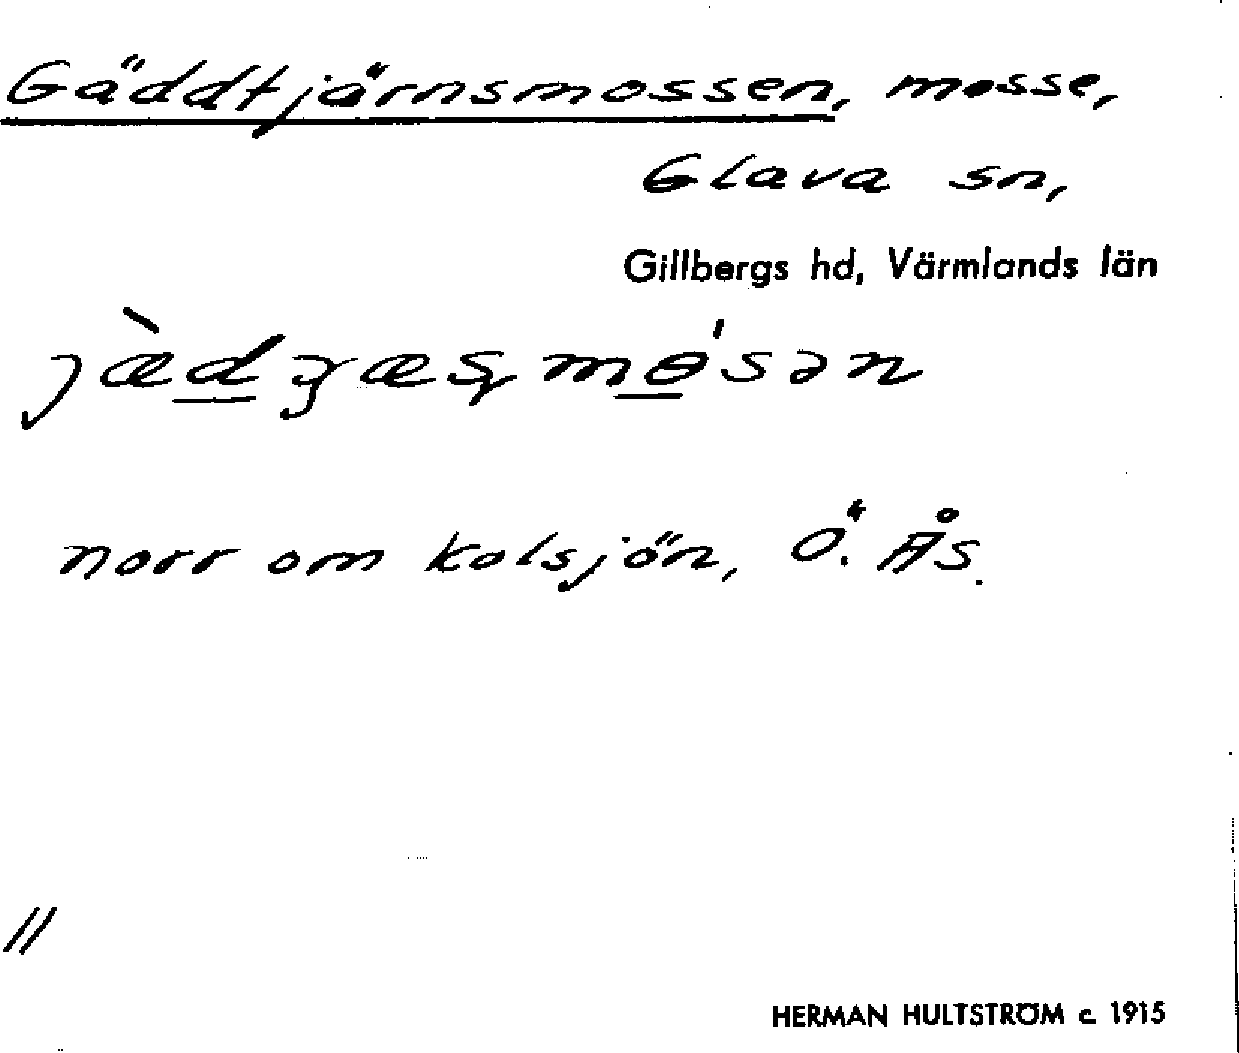 Gäddtjärnsmossen, mosse,
Glava sn,
Gillbergs hd, Värmlands län
norr om Kolsjön, Ö. Ås.
//
HERMAN HULTSTRÖM c. 1915